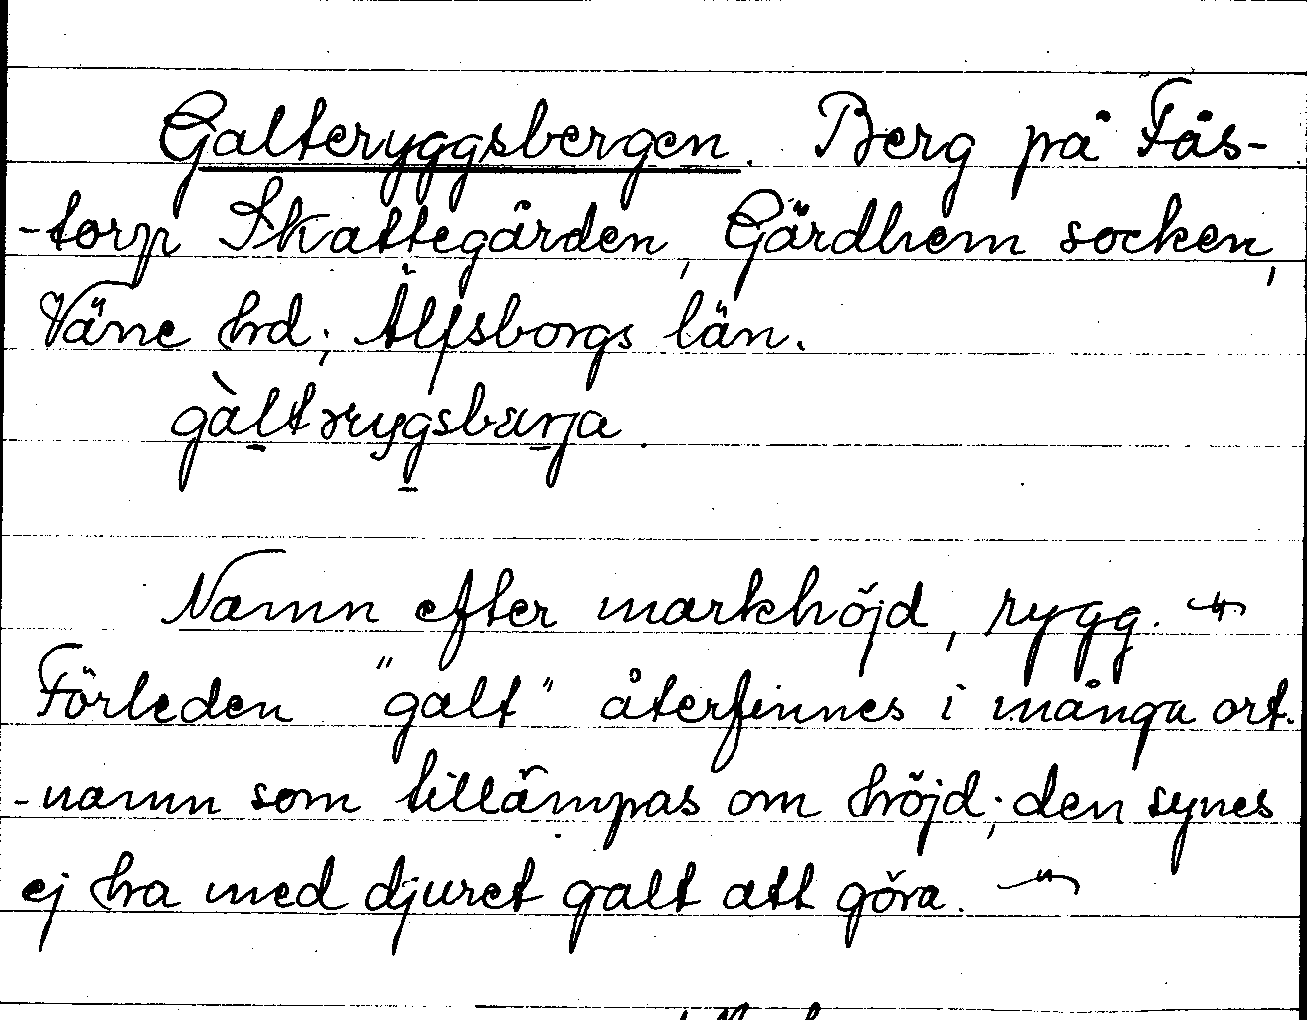 Galteryggsbergen. Berg på Fås-
-torp Skattegården, Gärdhem socken,
Väne hrd; Älfsborgs län.
gàltrygsbærja.
Namn efter markhöjd, rygg.
Förleden "galt" återfinnes i många ort-
-namn som tillämpas om höjd; den synes
ej ha med djuret galt att göra.